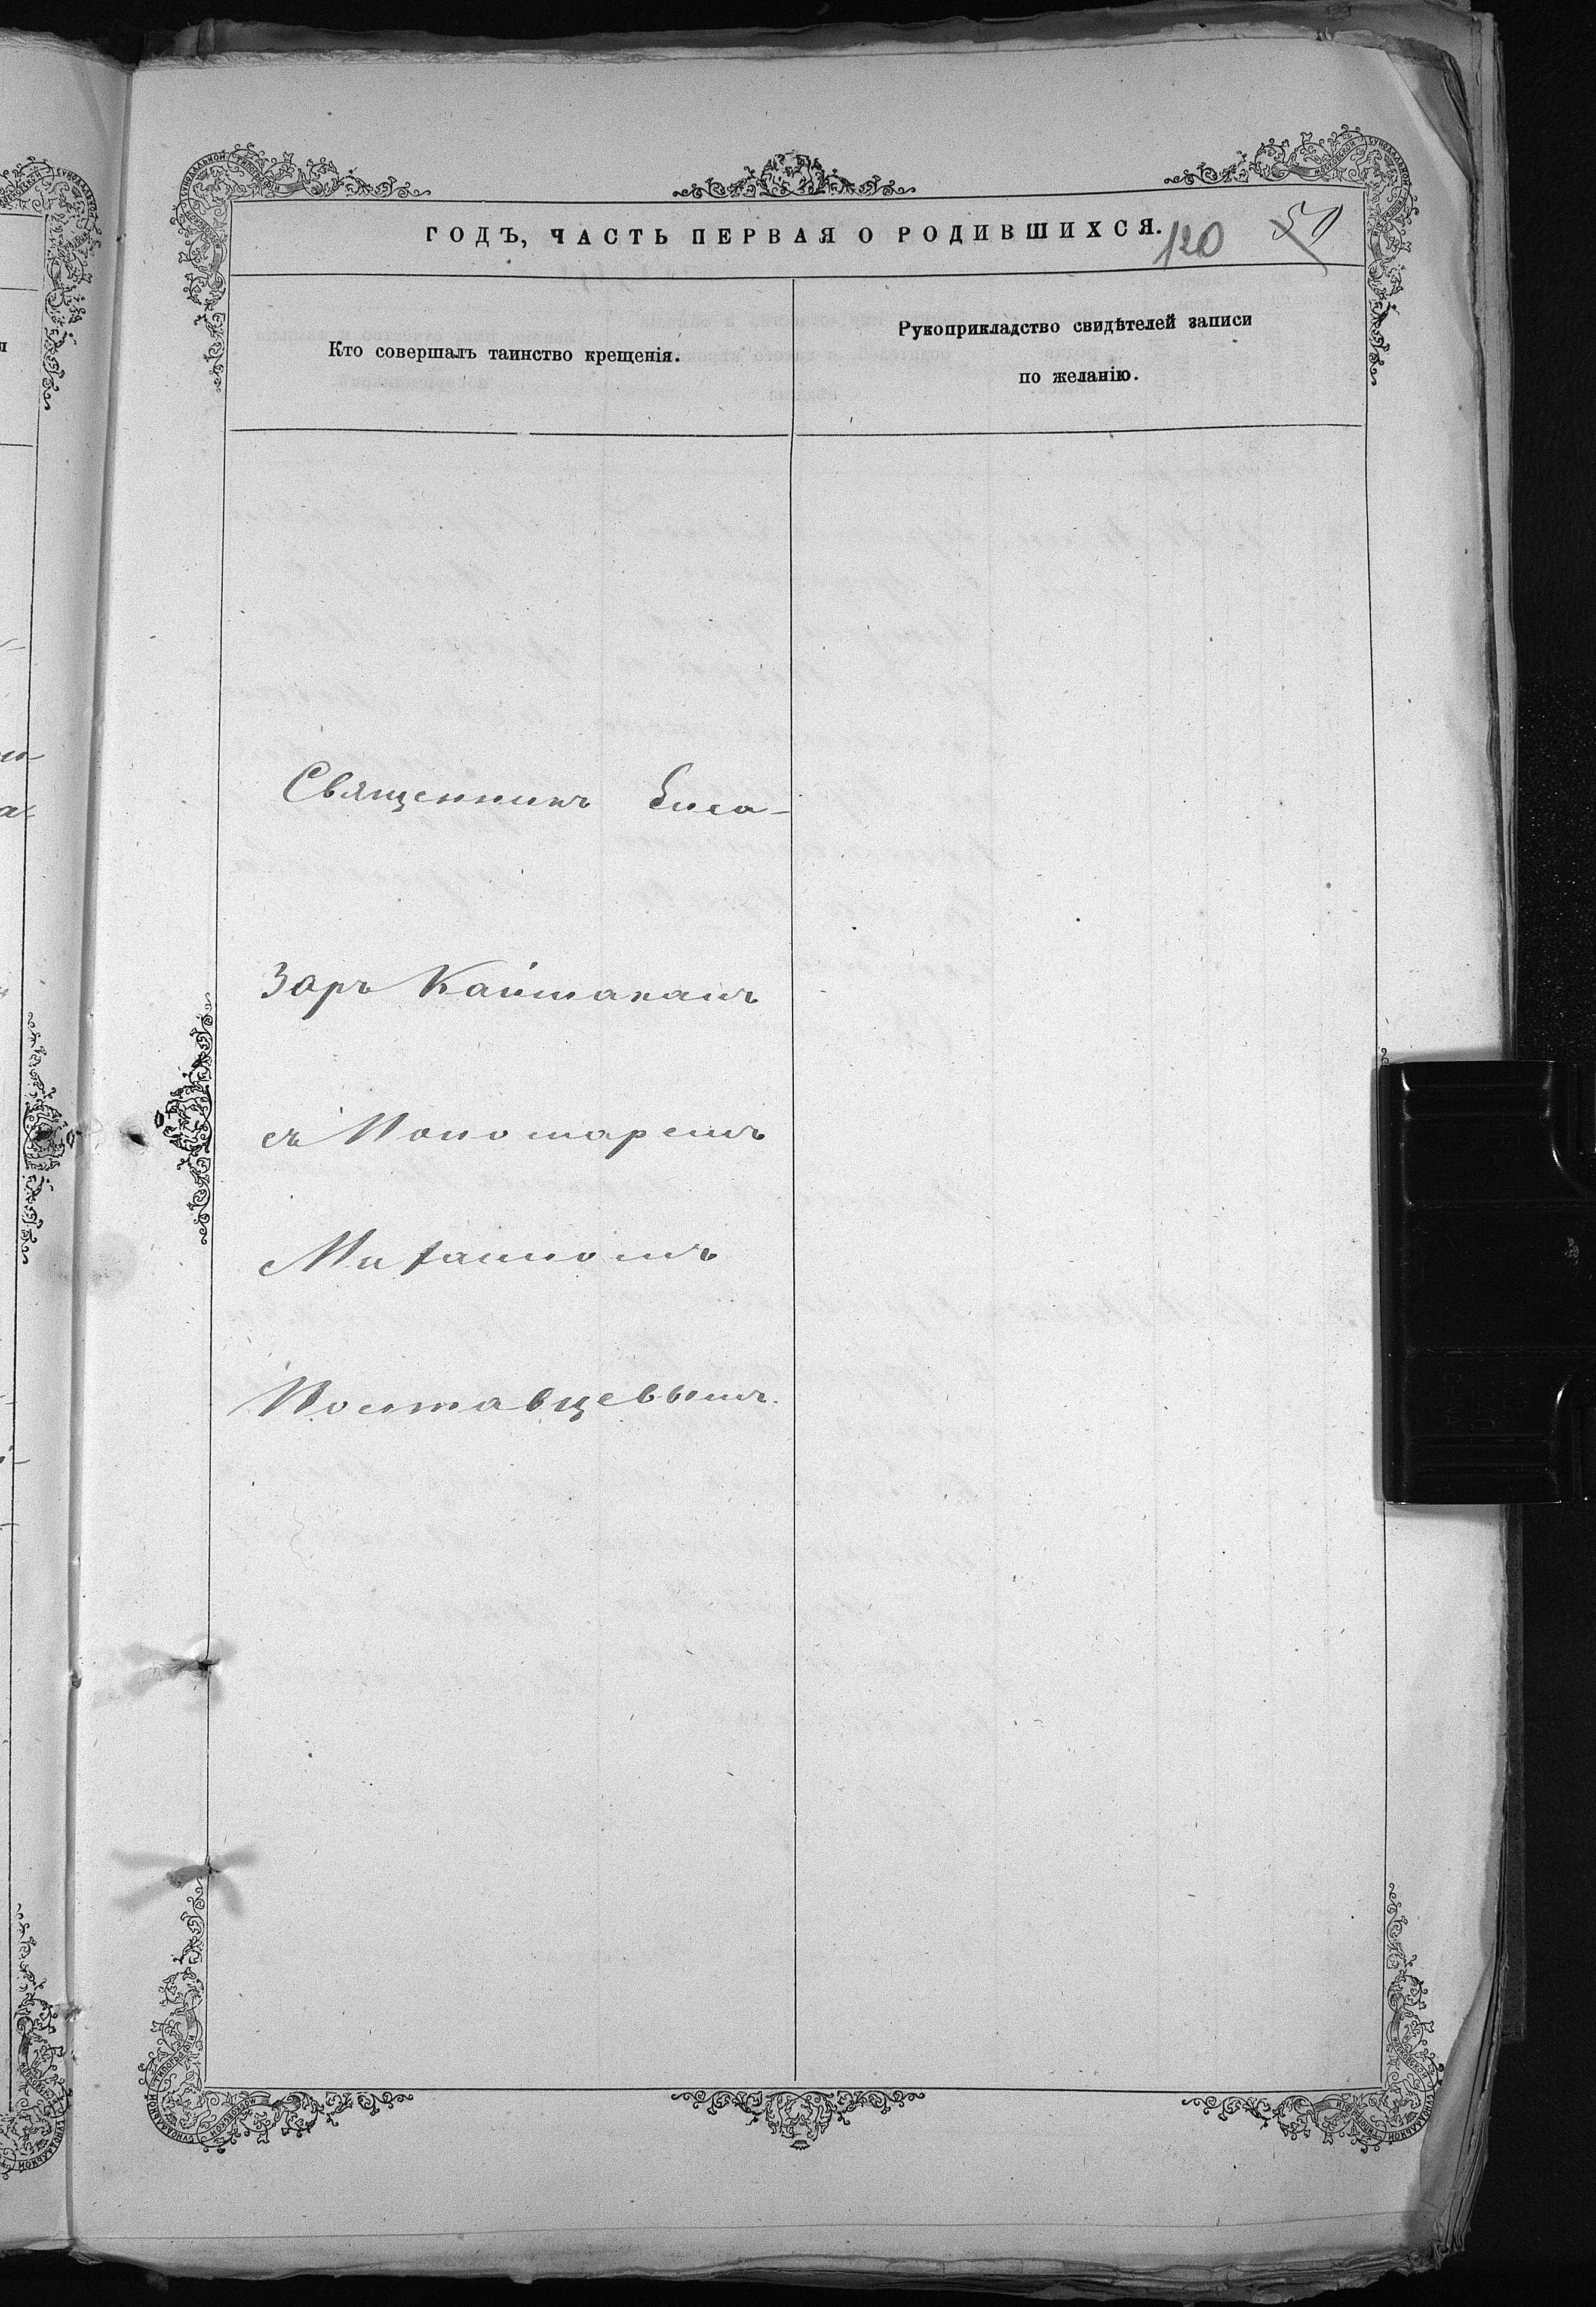 ГОДЪ, ЧАСТЬ ПЕРВАЯ О РОДИВШИХСЯ.
120
Кто совершалъ таинство крещенія.
Рукоприкладство свидѣтелей записи
по желанію.
Священникъ Елеа-
заръ Каймакамъ
съ Пономаремъ
Поставщевымъ.